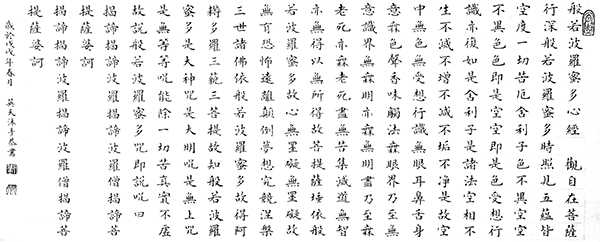 般若波羅蜜多心經 觀自在菩薩
行深般若波羅蜜多時照見五蘊皆
空度一切苦厄舍利子色不異空空
不異色色即是空空即是色受想行
識亦復如是舍利子是諸法空相不
生不滅不增不減不垢不淨是故空
中無色無受想行識無眼耳鼻舌身
意無色聲香味觸法無眼界乃至無
意識界無無明亦無無明盡乃至無
老死亦無老死盡無苦集滅道無智
亦無得以無所得故菩提薩埵依般
若波羅蜜多故心無罣礙無罣礙故
無有恐怖遠離顛倒夢想究竟涅槃
三世諸佛依般若波羅蜜多故得阿
耨多羅三藐三菩提故知般若波羅
蜜多是大神咒是大明咒是無上咒
是無等等咒能除一切苦真實不虛
故說般若波羅蜜多咒即說咒曰
揭諦揭諦波羅揭諦波羅僧揭諦菩
提薩婆訶
揭諦揭諦波羅揭諦波羅僧揭諦菩
提薩婆訶
歲於戊戌年春月 吳天沐手恭書